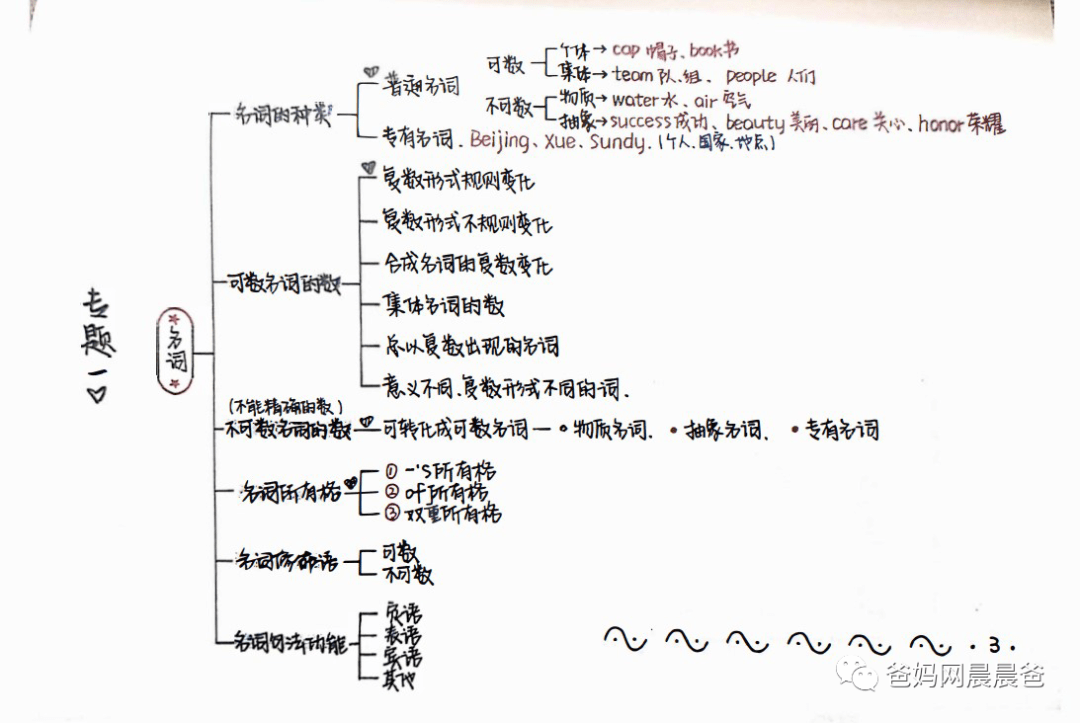 专题一
名词
名词的种类
普通名词
可数
个体→cap 帽子、book书
集体→team 队.组、people 人们
不可数
物质→water水、air 空气
抽象→success成功、beauty美丽、care 关心、honor荣耀
专有名词、Beijing、Xue、Sundy.(个人.国家.地点)
可数名词的数
复数形式规则变化
复数形式不规则变化
合成名词的复数变化
集体名词的数
总以复数出现的名词
意义不同、复数形式不同的词、
(不能精确的数)
不可数名词的数
可转化成可数名词一•物质名词、•抽象名词、•专有名词
名词所有格
① -'s所有格
② of所有格
③ 双重所有格
名词修饰语
可数
不可数
名词句法功能
表语
宾语
其他
·3·
爸妈网晨晨爸